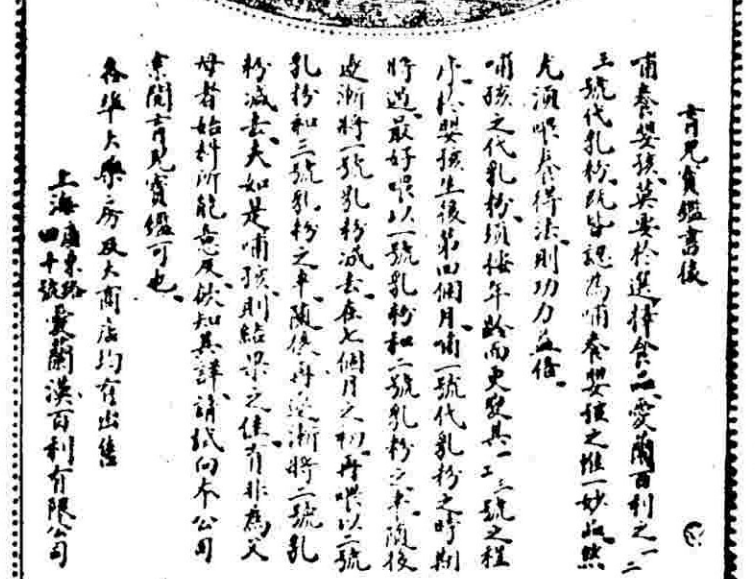 育兒寶鑑書後
哺養嬰孩莫要於選擇食品愛蘭百利之一二
三號代乳粉既皆認為哺養嬰孩之惟一妙品然
尤須喂養得法則功力益倍
哺孩之代乳粉須按年齡而更變其一二三號之程
序於嬰孩生後第四個月哺一號代乳粉之時期
將過最好喂以一號乳粉和二號乳粉之半隨後
逐漸將一號乳粉減去在七個月之初再喂以二號
乳粉和三號乳粉之半隨後再逐漸將二號乳
粉減去夫如是哺孩則結果之佳有非為父
母者始料所能意及欲知其詳請試向本公司
索閱育兒寶鑑可也
各埠大藥房及大商店均有出售
上海廣東路四十號愛蘭漢百利有限公司